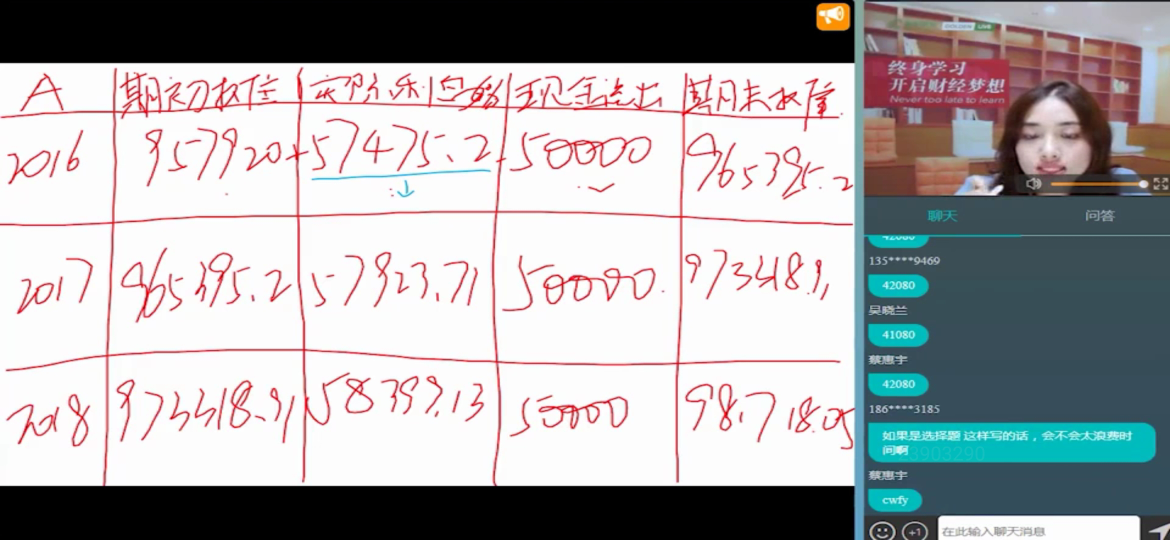 A 期初摊余 实际利息费用 现金流出 期末摊余
2016 957920+ 57475.2- 50000 965395.2
2017 965395.2 57923.71 50000. 973318.91
2018 973318.91 58399.13 50000 981718.05
终身学习
开启财经梦想
Never too late to learn
LIVE
聊天 问答
42080
135****9469
42080
吴晓兰
41080
蔡惠宇
42080
186****3185
如果是选择题 这样写的话，会不会太浪费时
间啊
蔡惠宇
cwfy
+1 在此输入聊天消息